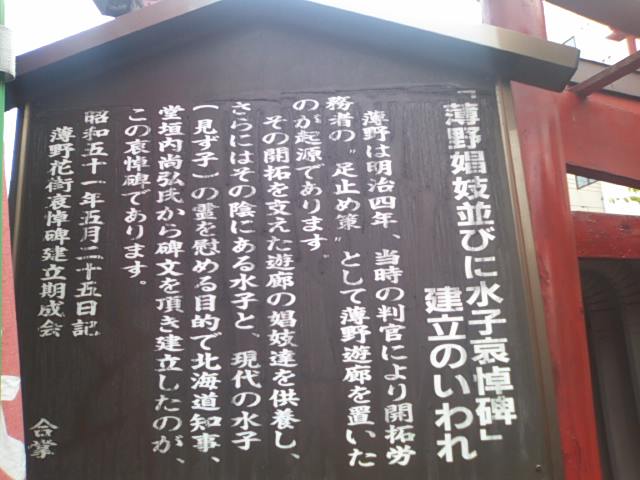 「薄野娼妓並びに水子哀悼碑」
建立のいわれ
薄野は明治四年、当時の判官により開拓労
務者の〝足止め策〟として薄野遊廓を置いた
のが起源であります。
その開拓を支えた遊廓の娼妓達を供養し、
さらにはその陰にある水子と、現代の水子
(見ず子)の霊を慰める目的で北海道知事、
堂垣内尚弘氏から碑文を頂き建立したのが、
この哀悼碑であります。
昭和五十一年五月二十五日記
薄野花街哀悼碑建立期成会
合掌